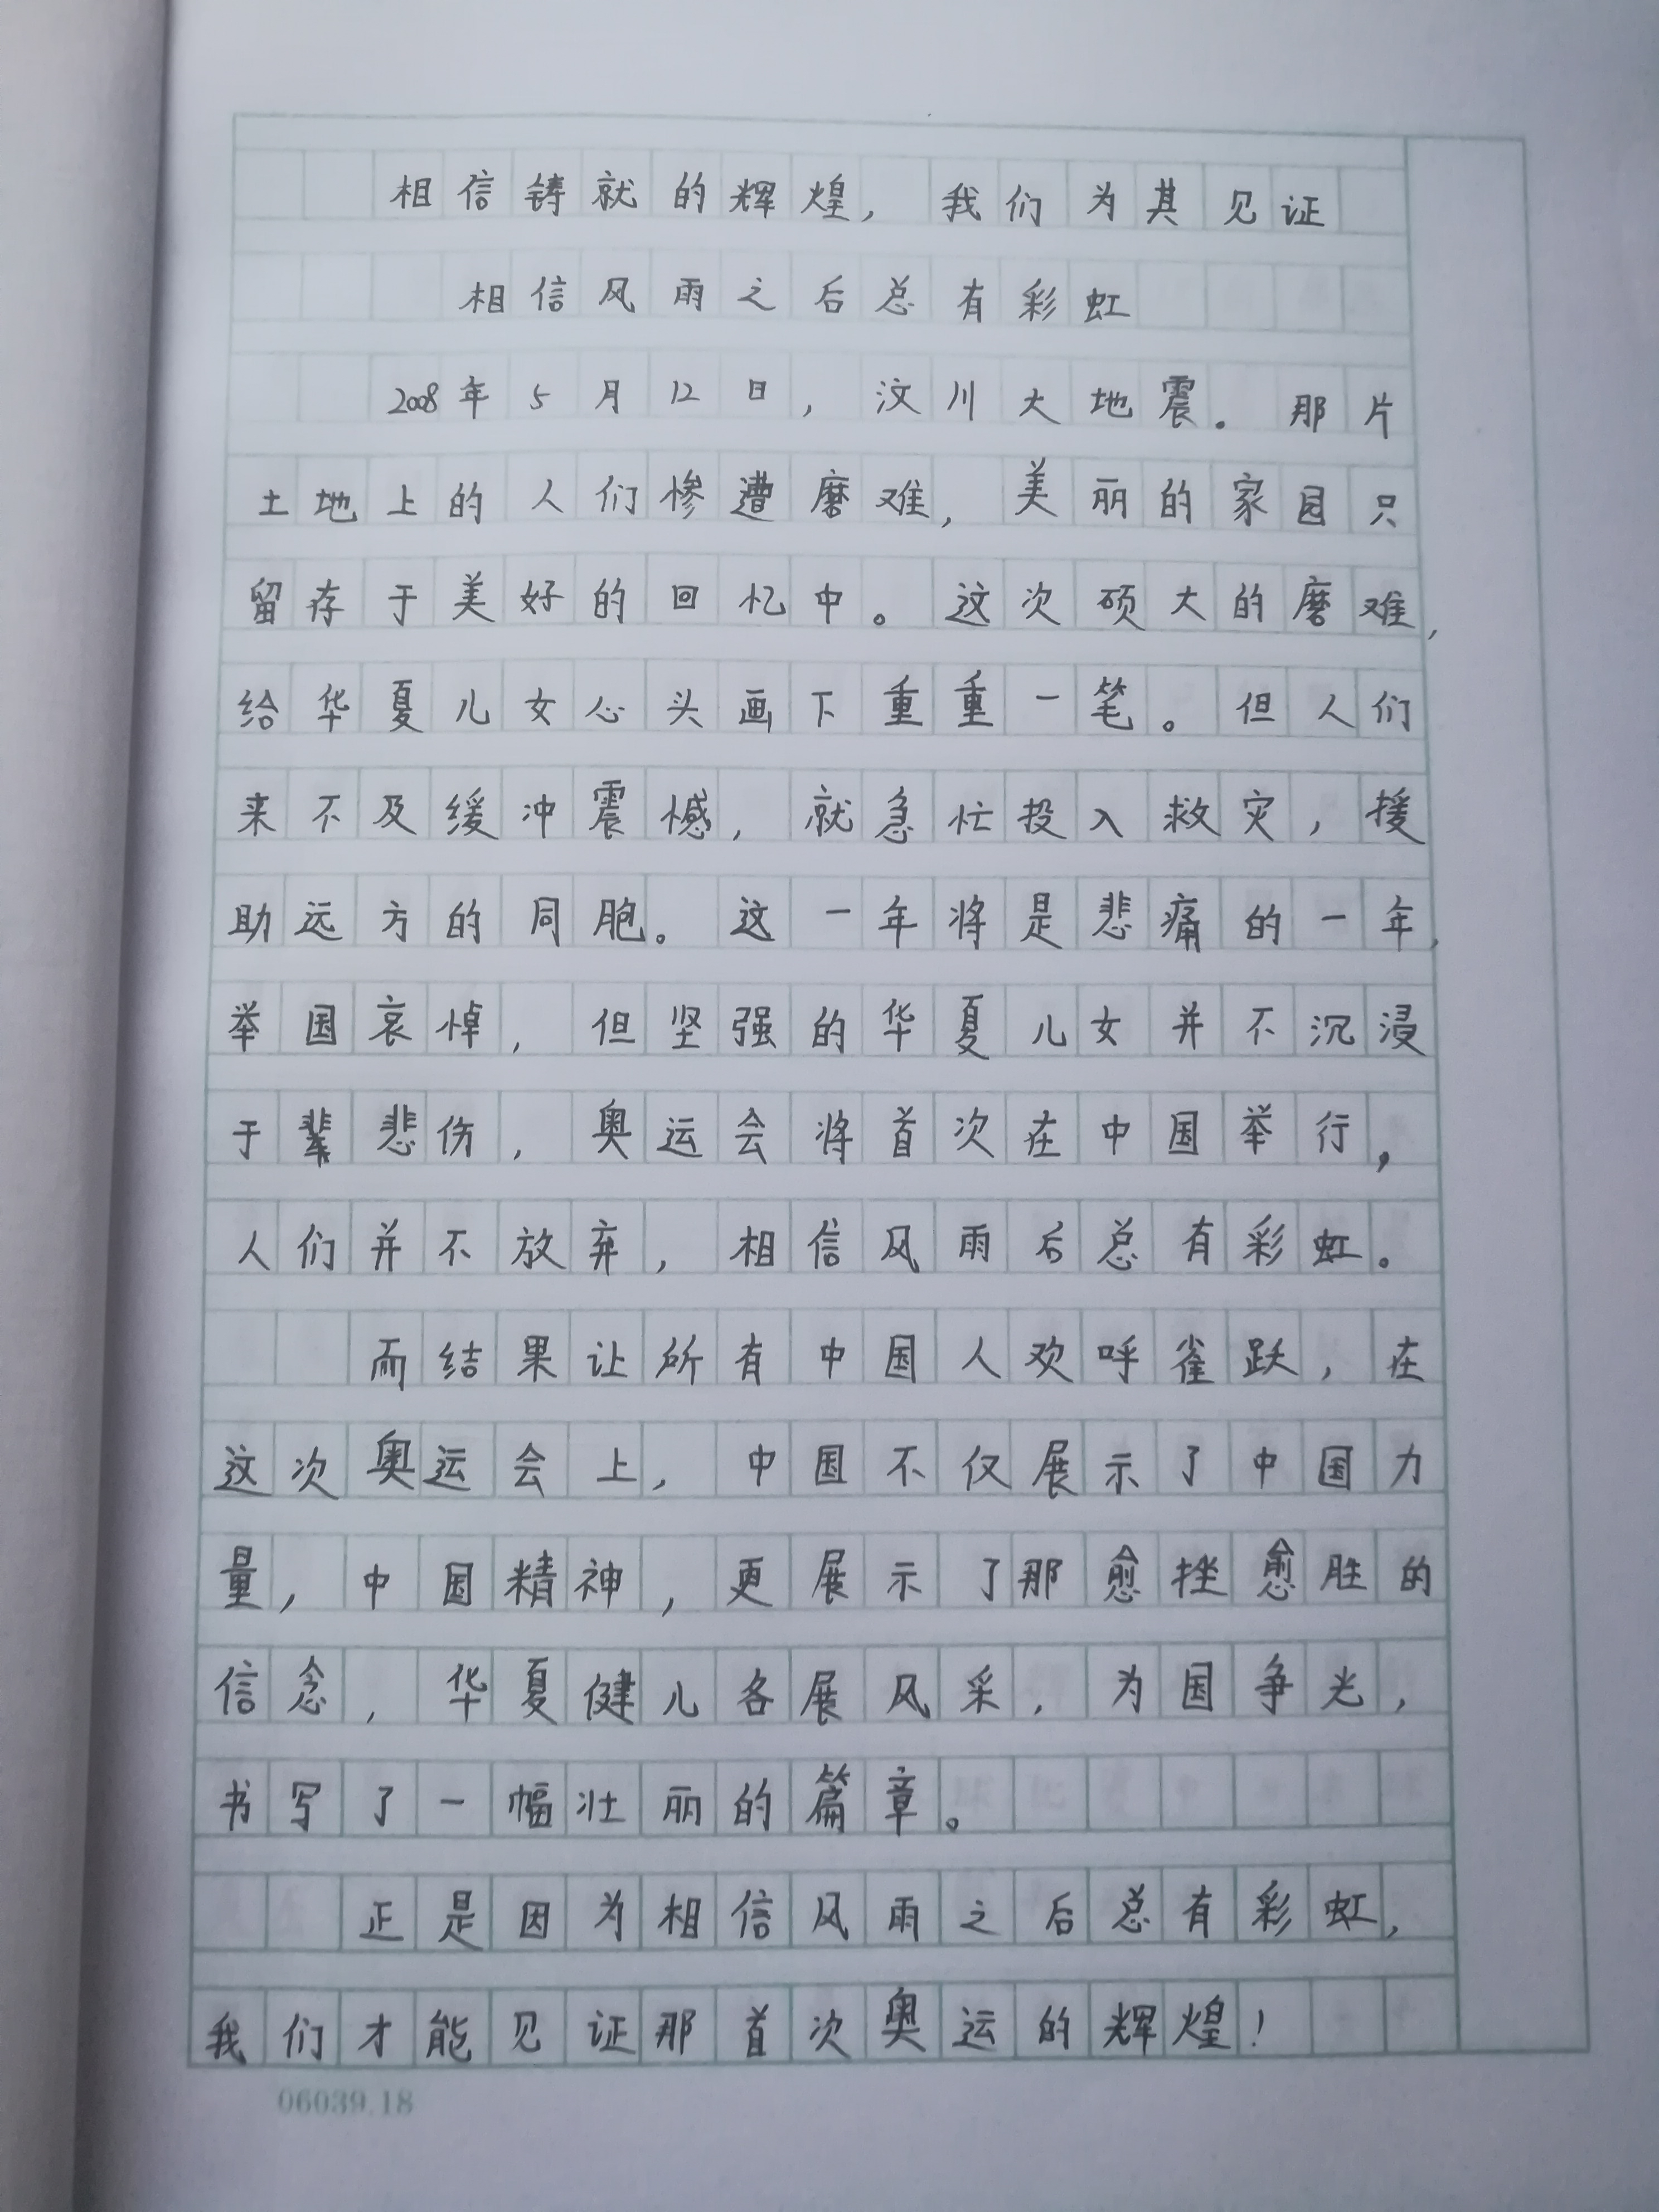 相信铸就的辉煌，我们为其见证
相信风雨之后总有彩虹
2008年5月12日，汶川大地震。那片
土地上的人们惨遭磨难，美丽的家园只
留存于美好的回忆中。这次硕大的磨难，
给华夏儿女心头画下重重一笔。但人们
来不及缓冲震憾，就急忙投入救灾，援
助远方的同胞。这一年将是悲痛的一年，
举国哀悼，但坚强的华夏儿女并不沉浸
于悲伤，奥运会将首次在中国举行，
人们并不放弃，相信风雨后总有彩虹。
而结果让所有中国人欢呼雀跃，在
这次奥运会上，中国不仅展示了中国力
量，中国精神，更展示了那愈挫愈胜的
信念，华夏健儿各展风采，为国争光，
书写了一幅壮丽的篇章。
正是因为相信风雨之后总有彩虹，
我们才能见证那首次奥运的辉煌！
06039.18